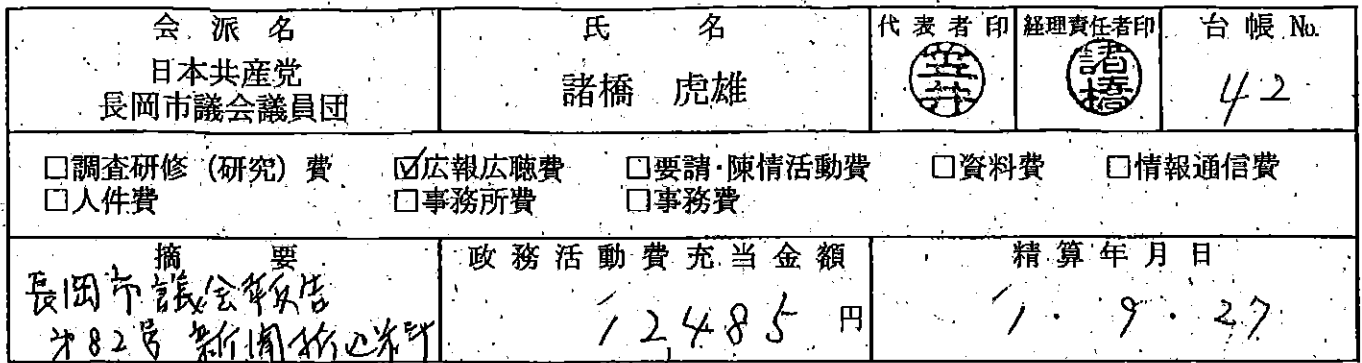 会派名 氏名 代表者印 経理責任者印 台帳No.
日本共産党
長岡市議会議員団
諸橋 虎雄
諸橋
42
□調査研修(研究)費 ☑広報広聴費 □要請・陳情活動費 □資料費 □情報通信費
□人件費 □事務所費 □事務費
摘要 政務活動費充当金額 精算年月日
長岡市議会報告
12,485円
1.9.27
才82号 新聞折込料